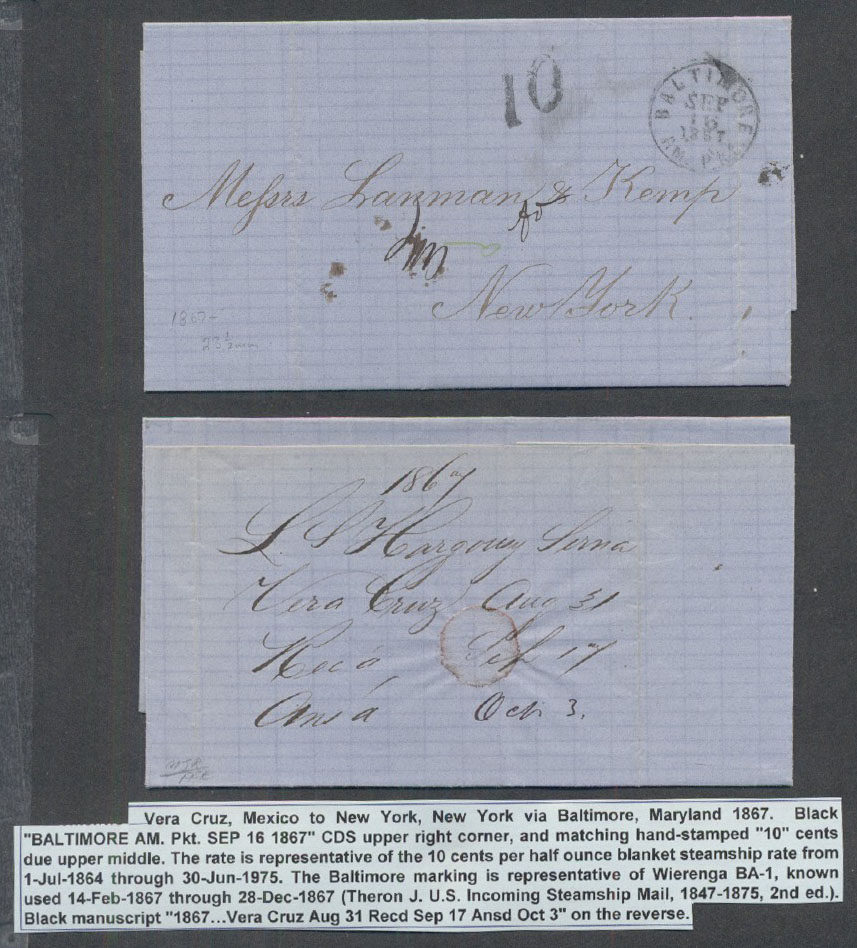 10
BALTIMORE
SEP
16
1867
AM. PKT.
Messrs Lanman & Kemp
New York.
1867-
23 1/2 mm
1867
L. S Hargous
Vera Cruz Aug 31
Recd Sep 17
Ansd Oct 3.
Vera Cruz, Mexico to New York, New York via Baltimore, Maryland 1867. Black
"BALTIMORE AM. Pkt. SEP 16 1867" CDS upper right corner, and matching hand-stamped "10" cents
due upper middle. The rate is representative of the 10 cents per half ounce blanket steamship rate from
1-Jul-1864 through 30-Jun-1975. The Baltimore marking is representative of Wierenga BA-1, known
used 14-Feb-1867 through 28-Dec-1867 (Theron J. U.S. Incoming Steamship Mail, 1847-1875, 2nd ed.).
Black manuscript "1867...Vera Cruz Aug 31 Recd Sep 17 Ansd Oct 3" on the reverse.